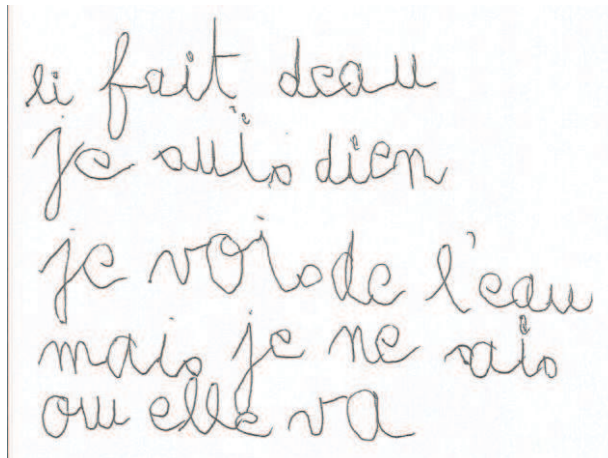 li fait deau
je suis dien
je vois de l'eau
mais je ne sais
ou elle va